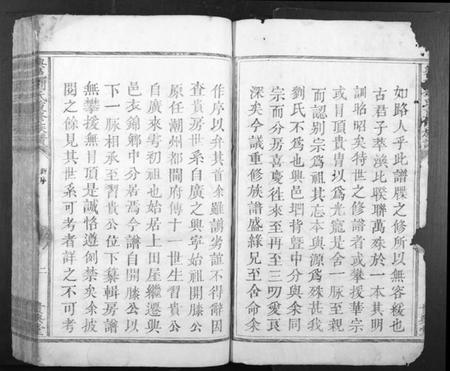 如路人乎此譜牒之修所以無容緩也
古君子萃渙比聯聯萬殊於一本其明
訓昭昭矣特世之修譜者或攀援華宗
或冒頂貴胄以爲光寵是舍一脈至親
而認別宗爲祖其忘本與源爲殊甚我
劉氏不爲也興邑塘背暨中分與余同
宗而分房吉喜慶往來至再至三叨愛良
深矣今議重修族譜盛緣兄至舍命余
作序以弁其首余雖譾劣誼不得辭因
查貴房世系自廣之興寧始祖開滕公
原任潮州都閫府傳十一世生習貴公
自廣來雩初祖也始居上田屋繼遷興
邑衣錦鄉中分若焉今譜自開滕公以
下一脈相承至習貴公位下彙輯房譜
無攀援無冒頂是誠恪遵劍禁矣余披
閱之餘見其世系可考者詳之不可考
新序
二